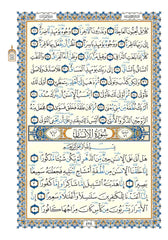 كَلَّا بَلْ تُحِبُّونَ الْعَاجِلَةَ وَتَذَرُونَ الْآخِرَةَ وُجُوهٌ يَوْمَئِذٍ نَّاضِرَةٌ
إِلَىٰ رَبِّهَا نَاظِرَةٌ وَوُجُوهٌ يَوْمَئِذٍ بَاسِرَةٌ تَظُنُّ أَن يُفْعَلَ بِهَا
فَاقِرَةٌ كَلَّا إِذَا بَلَغَتِ التَّرَاقِيَ وَقِيلَ مَنْ رَاقٍ وَظَنَّ أَنَّهُ الْفِرَاقُ
وَالْتَفَّتِ السَّاقُ بِالسَّاقِ إِلَىٰ رَبِّكَ يَوْمَئِذٍ الْمَسَاقُ فَلَا صَدَّقَ
وَلَا صَلَّىٰ وَلَٰكِن كَذَّبَ وَتَوَلَّىٰ ثُمَّ ذَهَبَ إِلَىٰ أَهْلِهِ يَتَمَطَّىٰ
أَوْلَىٰ لَكَ فَأَوْلَىٰ ثُمَّ أَوْلَىٰ لَكَ فَأَوْلَىٰ أَيَحْسَبُ الْإِنسَانُ أَن يُتْرَكَ سُدًى
أَلَمْ يَكُ نُطْفَةً مِّن مَّنِيٍّ يُمْنَىٰ ثُمَّ كَانَ عَلَقَةً فَخَلَقَ فَسَوَّىٰ فَجَعَلَ مِنْهُ
الزَّوْجَيْنِ الذَّكَرَ وَالْأُنثَىٰ أَلَيْسَ ذَٰلِكَ بِقَادِرٍ عَلَىٰ أَن يُحْيِيَ الْمَوْتَىٰ
سُورَةُ الْإِنسَانِ
بِسْمِ اللَّهِ الرَّحْمَٰنِ الرَّحِيمِ
هَلْ أَتَىٰ عَلَى الْإِنسَانِ حِينٌ مِّنَ الدَّهْرِ لَمْ يَكُن شَيْئًا مَّذْكُورًا
إِنَّا خَلَقْنَا الْإِنسَانَ مِن نُّطْفَةٍ أَمْشَاجٍ نَّبْتَلِيهِ فَجَعَلْنَاهُ سَمِيعًا
بَصِيرًا إِنَّا هَدَيْنَاهُ السَّبِيلَ إِمَّا شَاكِرًا وَإِمَّا كَفُورًا
إِنَّا أَعْتَدْنَا لِلْكَافِرِينَ سَلَاسِلَا وَأَغْلَالًا وَسَعِيرًا إِنَّ
الْأَبْرَارَ يَشْرَبُونَ مِن كَأْسٍ كَانَ مِزَاجُهَا كَافُورًا